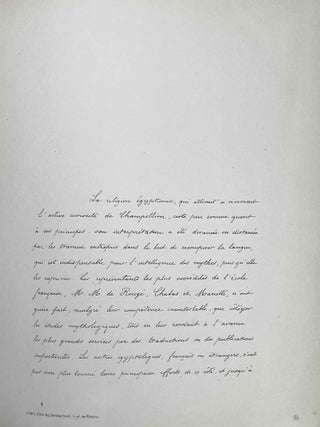 La religion égyptienne, qui attirait si vivement
l'active curiosité de Champollion, reste peu connue quant
à ses principes. son interprétation a été devancée ou distancée
par les travaux entrepris dans le but de recomposer la langue,
qui est indispensable pour l'intelligence des mythes, puisqu'elle
les exprime. Les représentants les plus accrédités de l'école
française, M. M. de Rougé, Chabas et Mariette, n'ont
guère fait, malgré leur compétence incontestable, que
les études mythologiques, tout en leur rendant à l'avance
les plus grands services par des traductions ou des publications
importantes. Les autres égyptologues, français ou étrangers, n'ont
pas non plus tourné leurs principaux efforts de ce côté, et jusqu'à
1